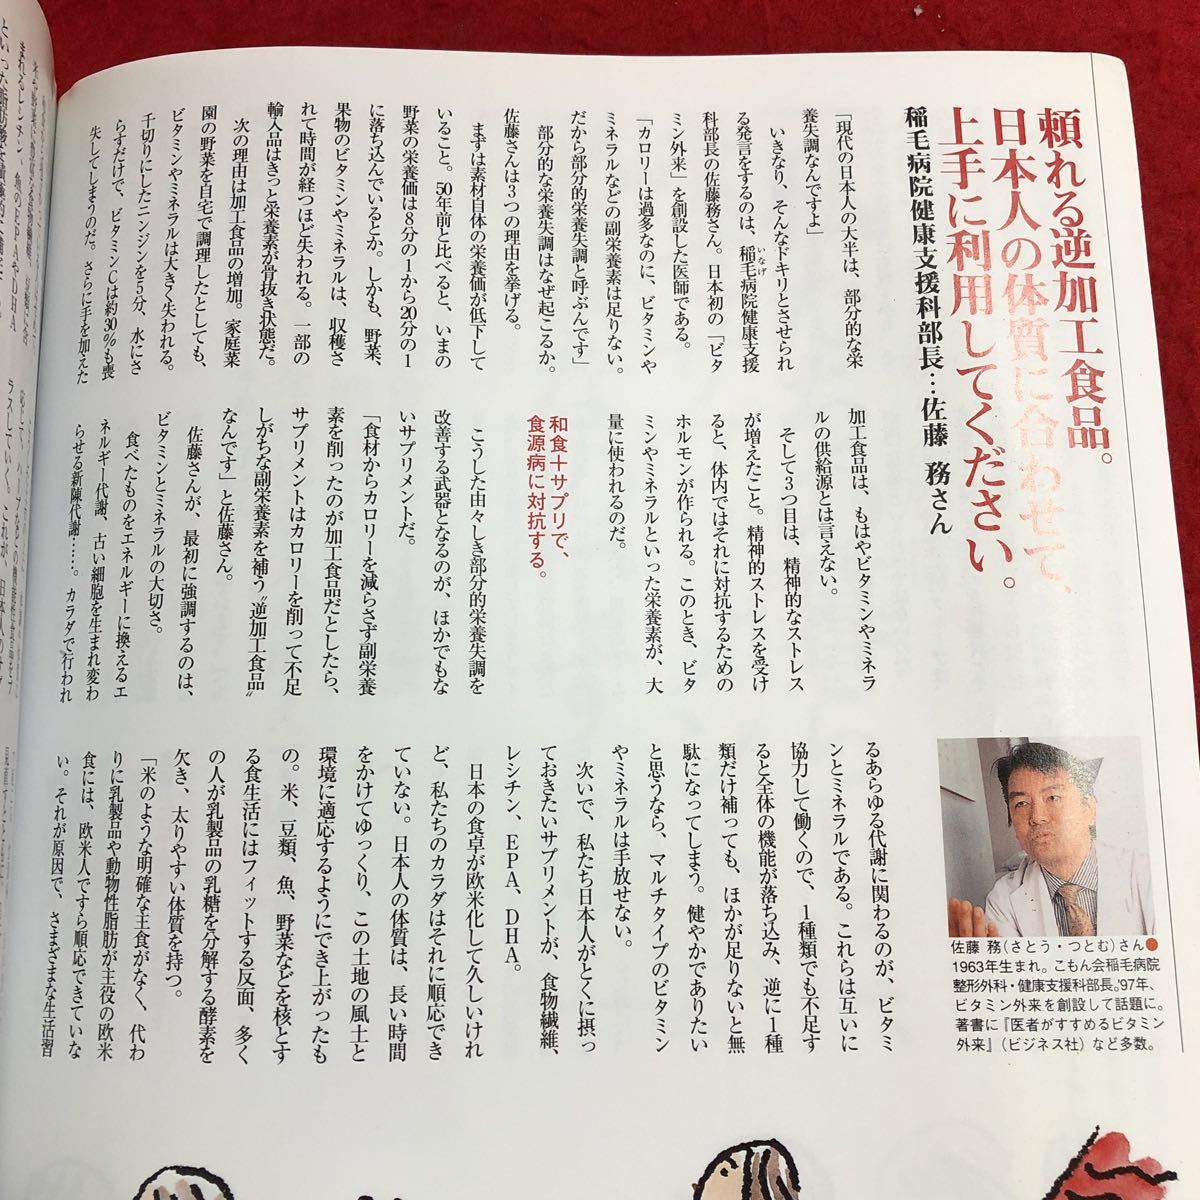 頼れる逆加工食品。
日本人の体質に合わせて、
上手に利用してください。
稲毛病院健康支援科部長…佐藤 務さん
「現代の日本人の大半は、部分的な栄
養失調なんですよ」
いきなり、そんなドキリとさせられ
る発言をするのは、稲毛病院健康支援
いなげ
科部長の佐藤務さん。日本初の「ビタ
ミン外来」を創設した医師である。
「カロリーは過多なのに、ビタミンや
ミネラルなどの副栄養素は足りない。
だから部分的栄養失調と呼ぶんです」
部分的な栄養失調はなぜ起こるか。
佐藤さんは3つの理由を挙げる。
まずは素材自体の栄養価が低下して
いること。50年前と比べると、いまの
野菜の栄養価は8分の1から20分の1
に落ち込んでいるとか。しかも、野菜、
果物のビタミンやミネラルは、収穫さ
れて時間が経つほど失われる。一部の
輸入品はきっと栄養素が骨抜き状態だ。
次の理由は加工食品の増加。家庭菜
園の野菜を自宅で調理したとしても、
ビタミンやミネラルは大きく失われる。
千切りにしたニンジンを5分、水にさ
らすだけで、ビタミンCは約30%も喪
失してしまうのだ。さらに手を加えた
加工食品は、もはやビタミンやミネラ
ルの供給源とは言えない。
そして3つ目は、精神的なストレス
が増えたこと。精神的ストレスを受け
ると、体内ではそれに対抗するための
ホルモンが作られる。このとき、ビタ
ミンやミネラルといった栄養素が、大
量に使われるのだ。
和食+サプリで、
食源病に対抗する。
こうした由々しき部分的栄養失調を
改善する武器となるのが、ほかでもな
いサプリメントだ。
「食材からカロリーを減らさず副栄養
素を削ったのが加工食品だとしたら、
サプリメントはカロリーを削って不足
しがちな副栄養素を補う〝逆加工食品〟
なんです」と佐藤さん。
佐藤さんが、最初に強調するのは、
ビタミンとミネラルの大切さ。
食べたものをエネルギーに換えるエ
ネルギー代謝、古い細胞を生まれ変わ
らせる新陳代謝……。カラダで行われ
るあらゆる代謝に関わるのが、ビタミ
ンとミネラルである。これらは互いに
協力して働くので、1種類でも不足す
ると全体の機能が落ち込み、逆に1種
類だけ補っても、ほかが足りないと無
駄になってしまう。健やかでありたい
と思うなら、マルチタイプのビタミン
やミネラルは手放せない。
次いで、私たち日本人がとくに摂っ
ておきたいサプリメントが、食物繊維、
レシチン、EPA、DHA。
日本の食卓が欧米化して久しいけれ
ど、私たちのカラダはそれに順応でき
ていない。日本人の体質は、長い時間
をかけてゆっくり、この土地の風土と
環境に適応するようにでき上がったも
の。米、豆類、魚、野菜などを核とす
る食生活にはフィットする反面、多く
の人が乳製品の乳糖を分解する酵素を
欠き、太りやすい体質を持つ。
「米のような明確な主食がなく、代わ
りに乳製品や動物性脂肪が主役の欧米
食には、欧米人ですら順応できていな
い。それが原因で、さまざまな生活習
佐藤 務(さとう・つとむ)さん●
1963年生まれ。こもん会稲毛病院
整形外科・健康支援科部長。'97年、
ビタミン外来を創設して話題に。
著書に『医者がすすめるビタミン
外来』(ビジネス社)など多数。